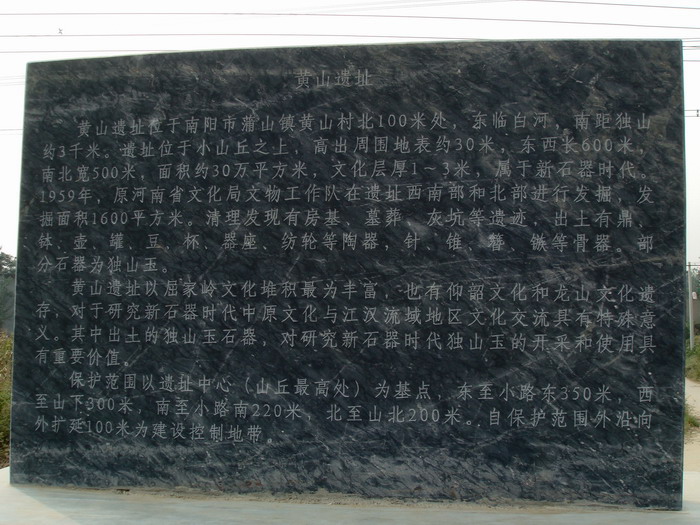 黄山遗址
黄山遗址位于南阳市蒲山镇黄山村北100米处，东临白河，南距独山
约3千米。遗址位于小山丘之上，高出周围地表约30米，东西长600米，
南北宽500米，面积约30万平方米，文化层厚1～3米，属于新石器时代。
1959年，原河南省文化局文物工作队在遗址西南部和北部进行发掘，发
掘面积1600平方米。清理发现有房基、墓葬、灰坑等遗迹，出土有鼎、
钵、壶、罐、豆、杯、器座、纺轮等陶器，针、锥、簪、镞等骨器。部
分石器为独山玉。
黄山遗址以屈家岭文化堆积最为丰富，也有仰韶文化和龙山文化遗
存，对于研究新石器时代中原文化与江汉流域地区文化交流具有特殊意
义。其中出土的独山玉石器，对研究新石器时代独山玉的开采和使用具
有重要价值。
保护范围以遗址中心（山丘最高处）为基点，东至小路东350米，西
至山下300米，南至小路南220米，北至山北200米。自保护范围外沿向
外扩延100米为建设控制地带。